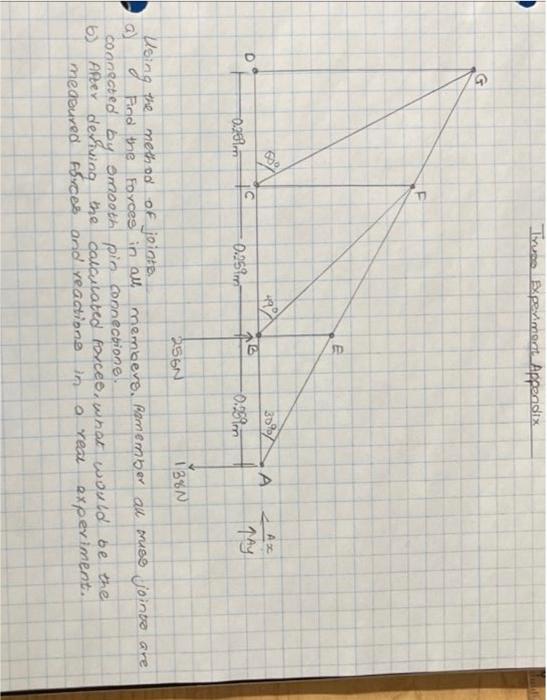 Truss Experiment Appendix
G
F
E
60°
49°
30°
D
C
B
A
Ax
Ay
0.259m
0.259m
0.259m
256N
138N
Using the method of joints
a) Find the forces in all members. Remember all truss joints are
connected by smooth pin connections.
b) After deriving the calculated forces, what would be the
measured forces and reactions in a real experiment.